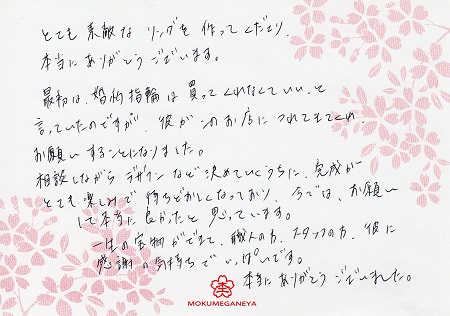 とても 素敵な リングを 作ってくださり、
本当に ありがとう ございます。
最初は、婚約指輪は 買ってくれなくていい、と
言っていたのですが、彼が このお店に つれてきてくれ、
お願い することに なりました。
相談しながら デザイン など 決めていくうちに、完成が
とても 楽しみで 待ちどおしくなっており、今では、お願い
して本当に 良かったと 思っています。
一生の宝物ができて、職人の方、スタッフの方、彼に
感謝の気持ちで いっぱいです。
本当に ありがとう ございました。
MOKUMEGANEYA